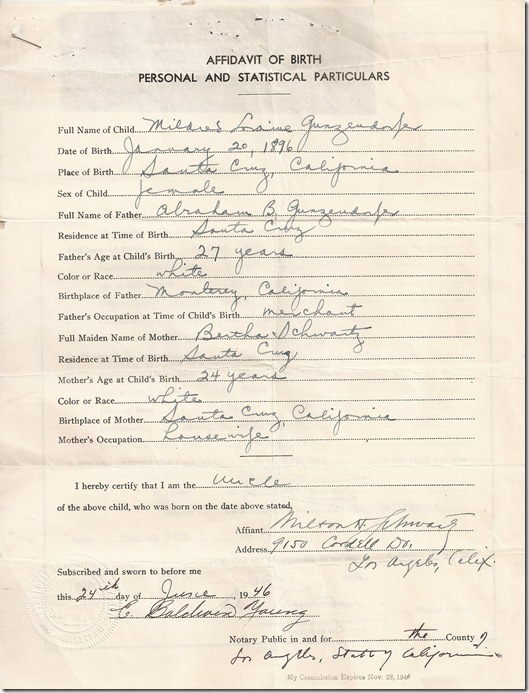 AFFIDAVIT OF BIRTH
PERSONAL AND STATISTICAL PARTICULARS
Full Name of Child Mildred Loraine Gunzendorfer
Date of Birth January 20, 1896
Place of Birth Santa Cruz, California
Sex of Child female
Full Name of Father Abraham B. Gunzendorfer
Residence at Time of Birth Santa Cruz
Father's Age at Child's Birth 27 years
Color or Race white
Birthplace of Father Monterey, California
Father's Occupation at Time of Child's Birth merchant
Full Maiden Name of Mother Bertha Schwartz
Residence at Time of Birth Santa Cruz
Mother's Age at Child's Birth 24 years
Color or Race white
Birthplace of Mother Santa Cruz, California
Mother's Occupation housewife
I hereby certify that I am the uncle
of the above child, who was born on the date above stated,
Affiant. Milton H. Schwartz
Address. 9150 Cordell Dr.
Los Angeles, Calif.
Subscribed and sworn to before me
this 24th day of June, 1946
C. Baldwin Young
Notary Public in and for the County of
Los Angeles, State of California
My Commission Expires Nov. 28,